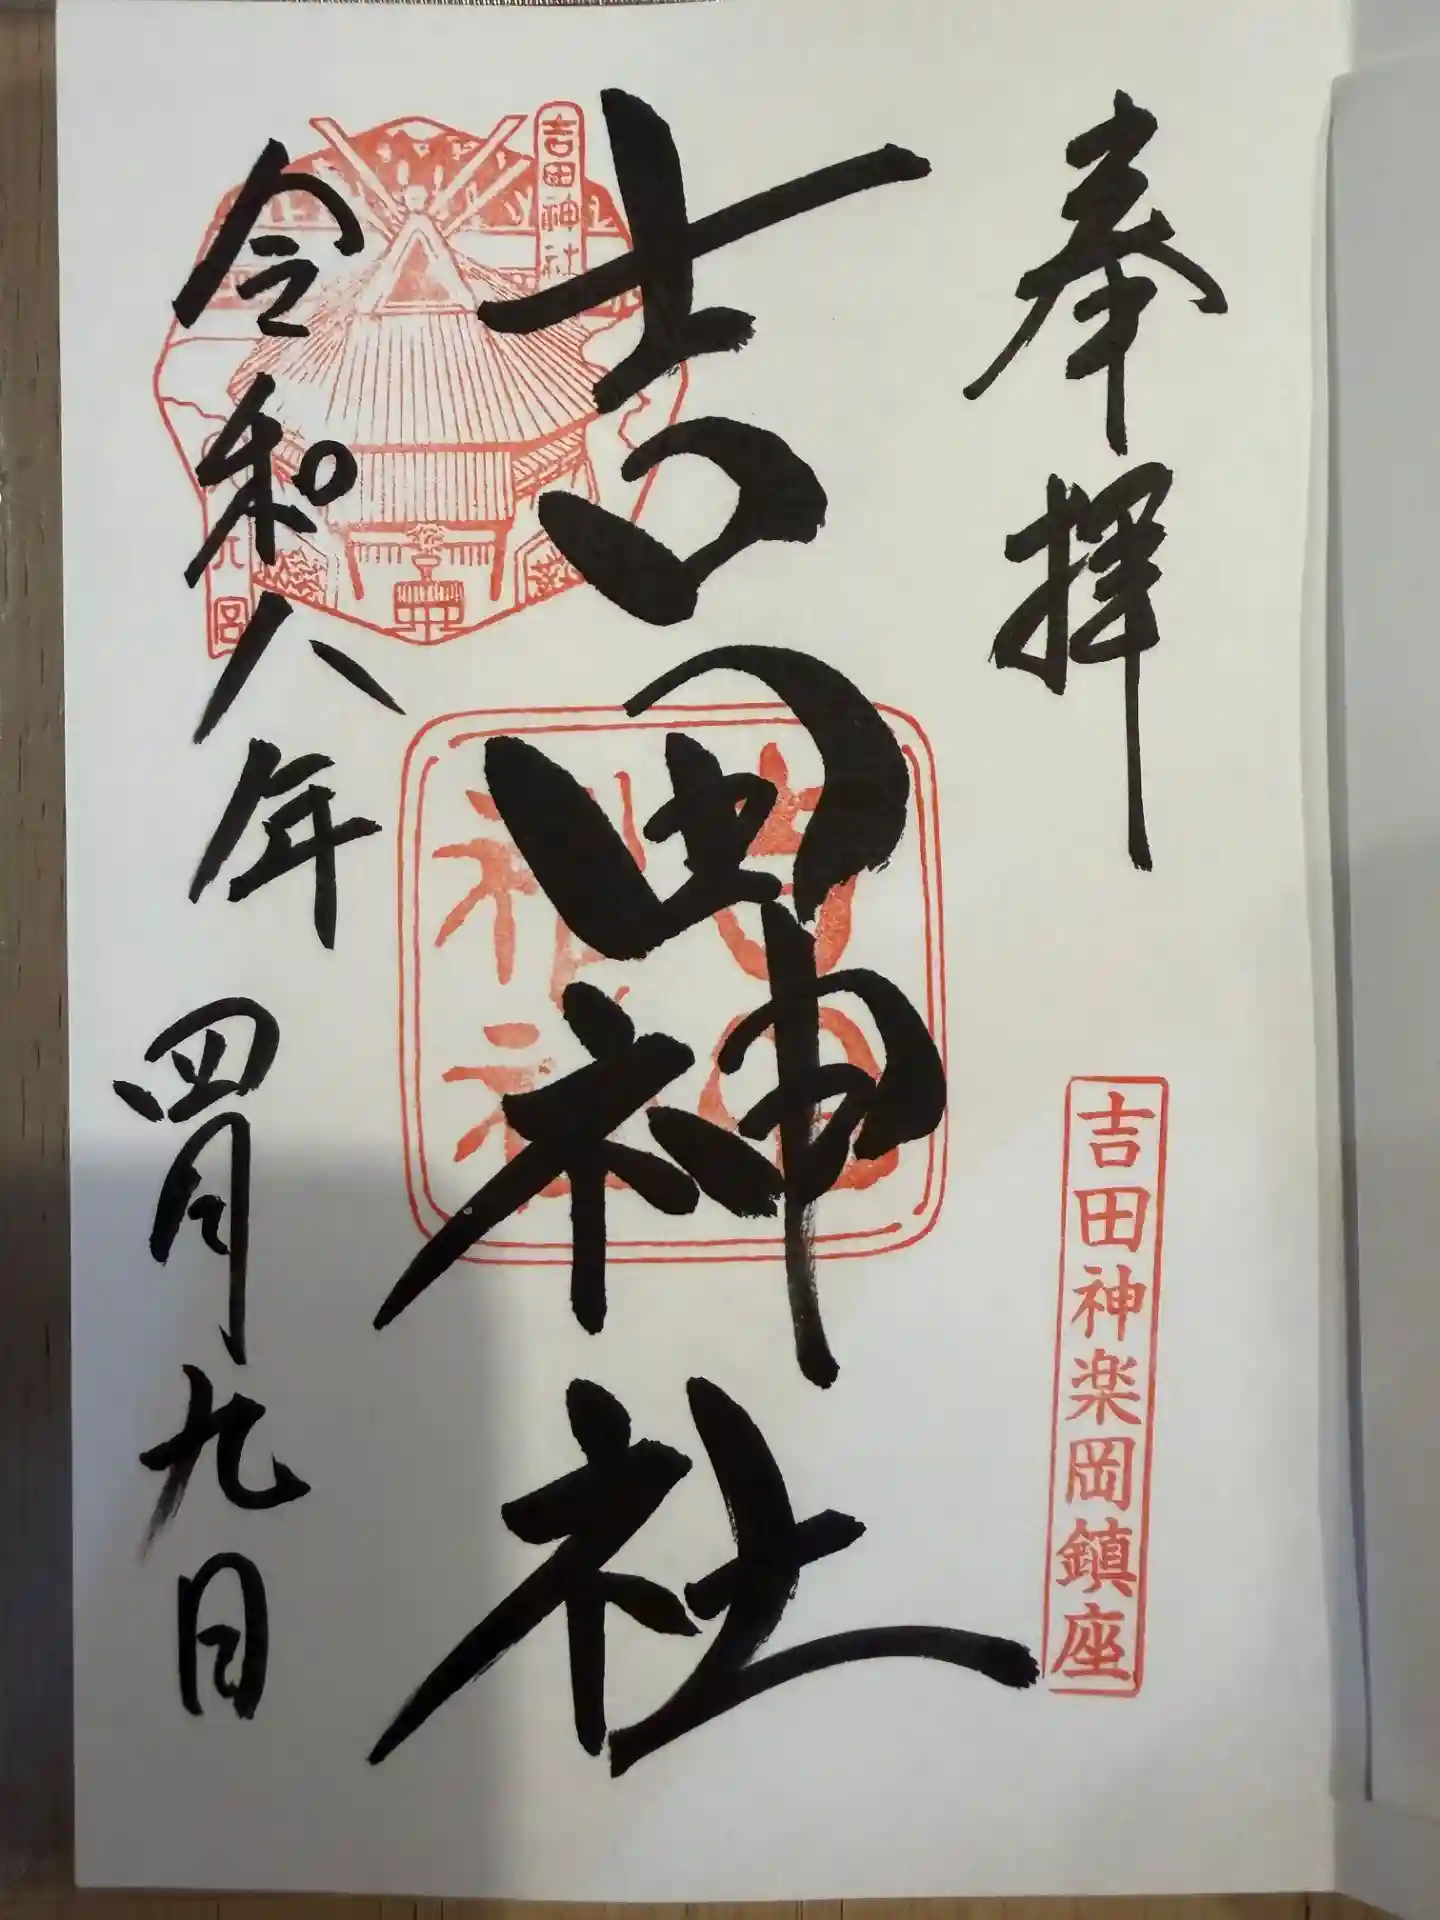 奉拝
吉田神楽岡鎮座
吉田神社
吉田神社
吉田
神社
令和八年四月九日